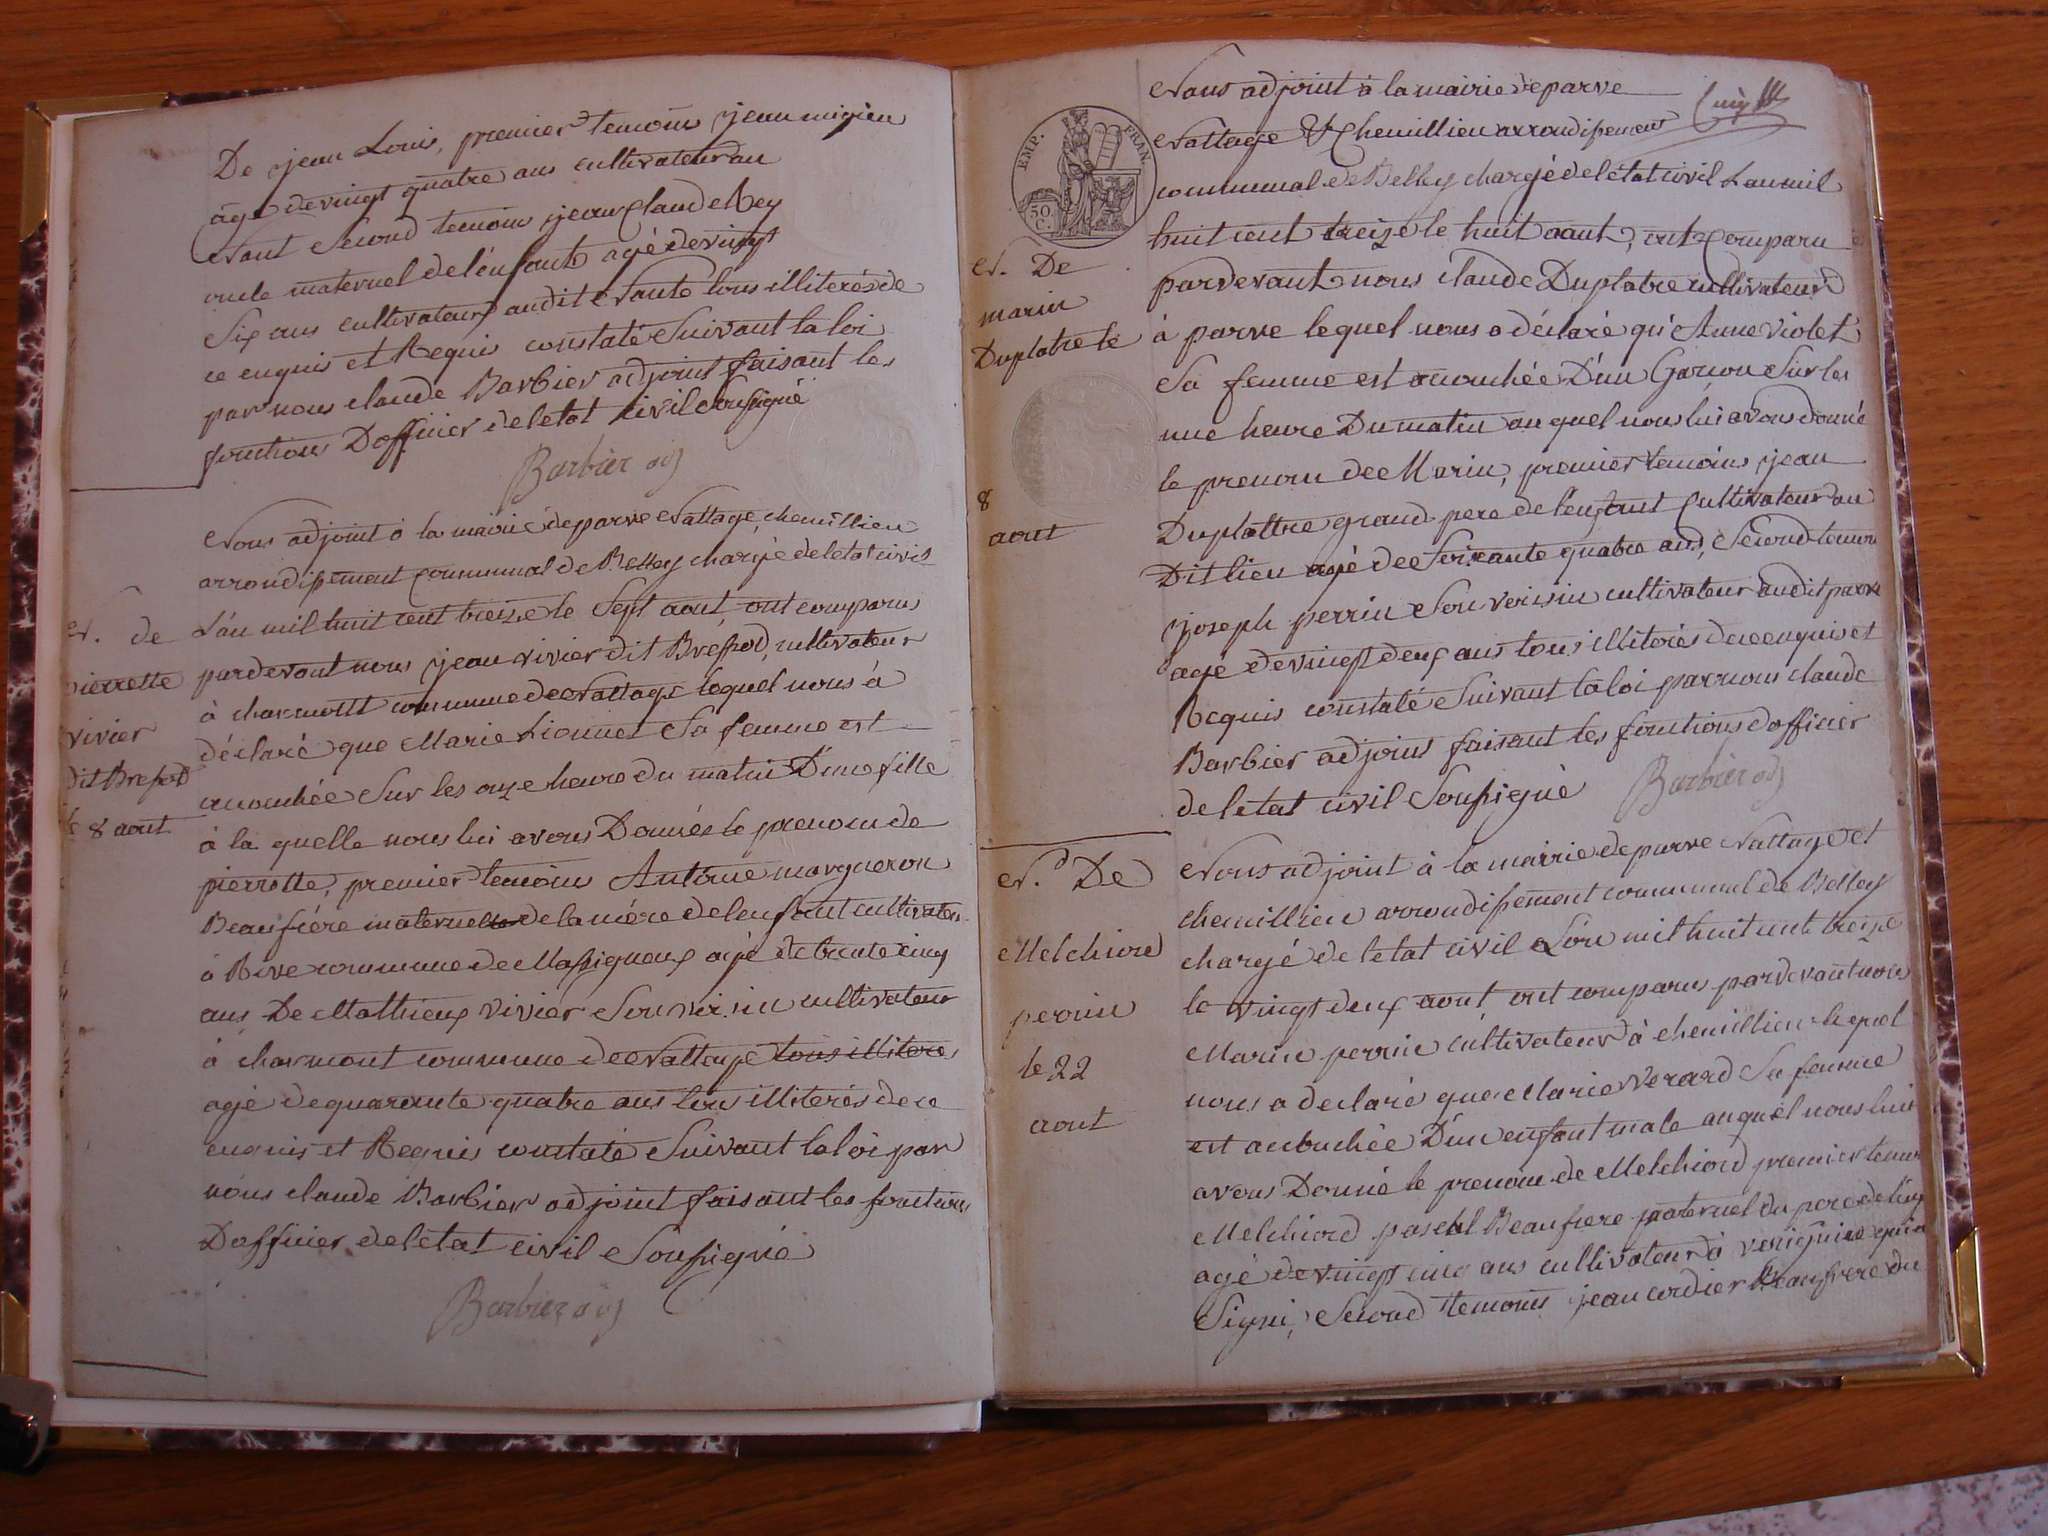 De jean Louis, premier temoin jean migieu
âgé de vingt quatre ans cultivateur au
Nant second temoin jean Claude Rey
oncle maternel de l'enfant agé de vingt
Six ans cultivateur audit Nant tous illiterés de
ce enquis et Requis constaté Suivant la loi
par nous claude Barbier adjoint faisant les
fonctions D'officier de letat civil Soussigné
Barbier adj
Nous adjoint à la mairie de parve Nattage, chemillieu
arrondissement Communal de Belley chargé de letat civil
L'an mil huit cent treize le Sept aout, ont comparus
N. de
pardevant nous jean vivier dit Bressod, cultivateur
pierrette
à charmont commune de Nattage lequel nous à
vivier
déclaré que Marie Lionnet Sa femme est
dit Bressod
accouchée Sur les onze heure du matin D'une fille
le 8 aout
à la quelle nous lui avons Donnés le prenom de
pierrette, premier temoins Antoine margueron
Beaufrére maternelle de la mére de lenfant cultivateur
à Rive commune de Massignieux agé de trente cinq
ans De Mathieux vivier Son voisin cultivateur
à charmont commune de Nattage tous illiteres
agé de quarante quatre ans tous illiterés de ce
enquis et Requis constaté Suivant la loi par
nous claude Barbier adjoint faisant les fonctions
D'officier de letat civil Soussigné
Barbier adj
Nous adjoint à la mairie de parve
Nattage & Chemillieu arrondissement
EMP. FRAN.
50 C.
communal de Belley chargé de letat civil Lan mil
huit cent treize le huit aout, ont Comparu
N. De
pardevant nous claude Duplatre cultivateur
marin
à parve lequel nous a déclaré qu'Anne violet
Duplatre le
Sa femme est accouchée D'un Garcon Sur les
une heure Du matin au quel nous lui avons donné
le prenom de Marin, premier temoins jean
8
Duplattre grand pere de lenfant Cultivateur au
aout
Dit lieu agé de Soixante quatre ans, Second temoin
joseph perrin Son voisin cultivateur audit parve
agé de vingt deux ans tous illiterés de ce enquis et
Requis constaté Suivant la loi par nous claude
Barbier adjoint faisant les fonctions d'officier
de letat civil Soussigné Barbier adj
Nous adjoint à la mairie de parve Nattage et
N.o De
chemillieu arrondissement communal de Belley
Melchiord
chargé de letat civil L'an mil huit cent treize
le vingt deux aout, ont comparus pardevant nous
perrin
Marin perrin cultivateur à chemillieu lequel
le 22
nous a declaré que Marie Verard Sa femme
aout
est accouchée D'un enfant male auquel nous lui
avons Donné le prenom de Melchiord premier temoin
Melchiord pascal Beaufrere paternel du pere de
agé de vingt cinq ans cultivateur à qui a
Signé, Second temoins jean cordier Beaufrere du